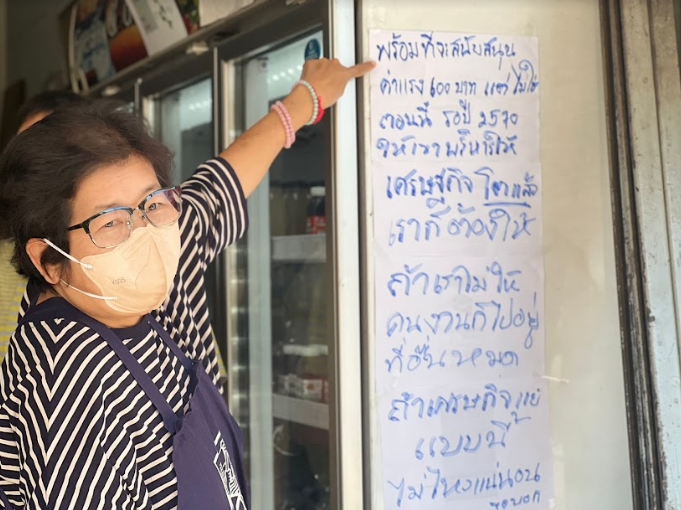 พร้อมที่จะสนับสนุน
ค่าแรง 600 บาท แต่ ไม่ใช่
ตอนนี้ รอปี 2570
ให้เขาบริหารให้
เศรษฐกิจ โตแล้ว
เราก็ต้องให้
ถ้าเราไม่ให้
คนงานก็ไปอยู่
ที่อื่นหมด
ถ้าเศรษฐกิจแย่
แบบนี้
ไม่ไหวแน่นอน